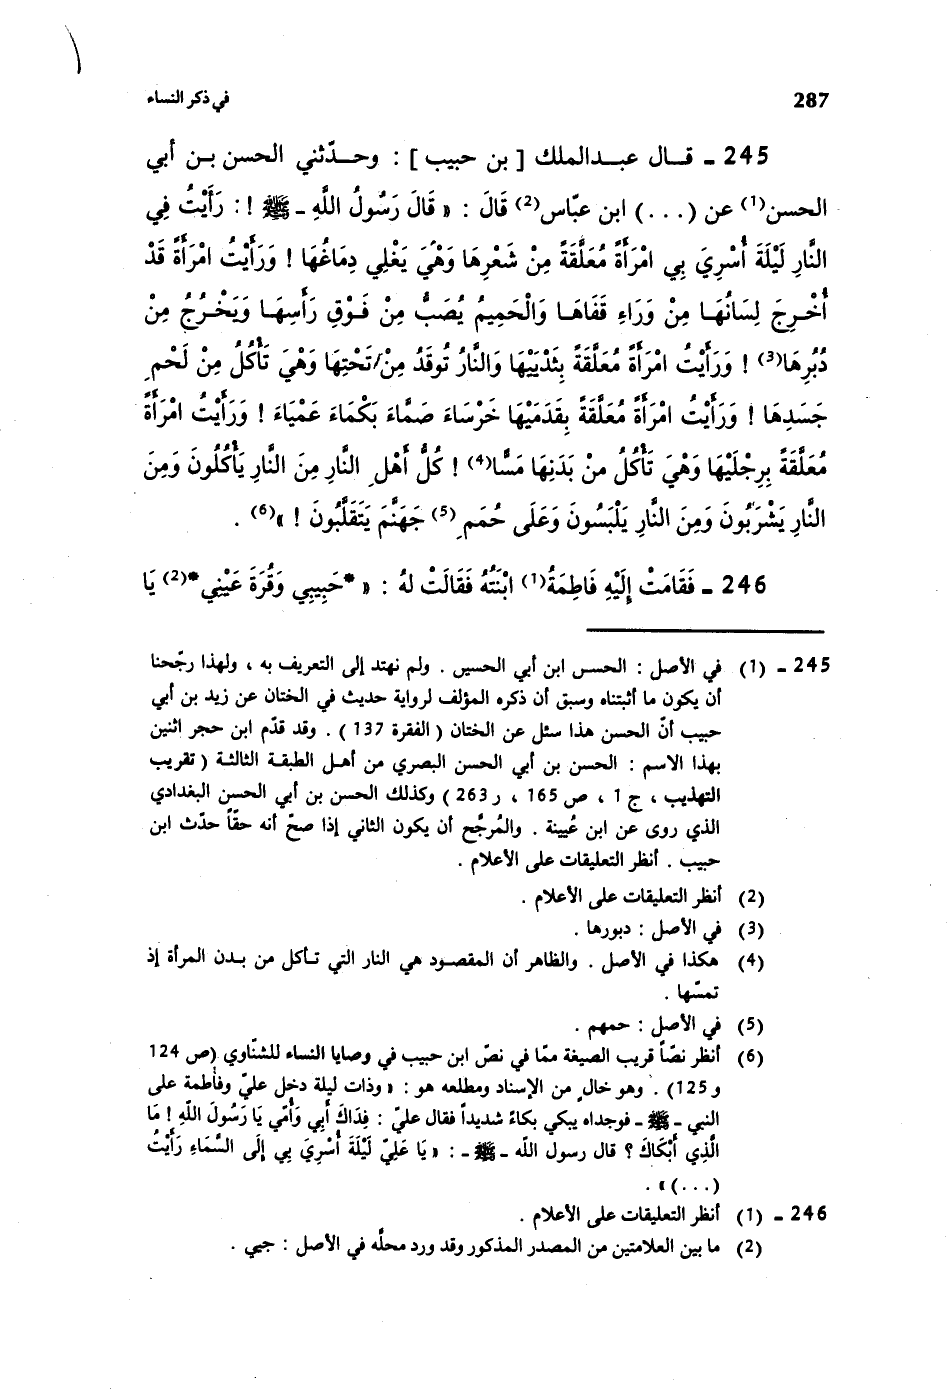 287
في ذكر النساء
245 ـ قــال عبــدالملك [ بن حبيب ] : وحــدّثني الحسن بـن أبي
الحسن(1) عن (. . .) ابن عبّاس(2) قَالَ : « قَالَ رَسُولُ اللَّهِ ـ ﷺ ! : رَأَيْتُ فِي
النَّارِ لَيْلَةَ أُسْرِيَ بِي امْرَأَةً مُعَلَّقَةً مِنْ شَعْرِهَا وَهْيَ يَغْلِي دِمَاغُهَا ! وَرَأَيْتُ امْرَأَةً قَدْ
أُخْـرِجَ لِسَانُهَـا مِنْ وَرَاءِ قَفَاهَـا وَالْحَمِيمُ يُصَبُّ مِنْ فَـوْقِ رَأْسِهَـا وَيَخْـرُجُ مِنْ
دُبُرِهَا(3) ! وَرَأَيْتُ امْرَأَةً مُعَلَّقَةً بِثَدْيَيْهَا وَالنَّارُ تُوقَدُ مِنْ/تَحْتِهَا وَهْيَ تَأْكُلُ مِنْ لَحْمِ
جَسَدِهَا ! وَرَأَيْتُ امْرَأَةً مُعَلَّقَةً بِقَدَمَيْهَا خَرْسَاءَ صَمَّاءَ بَكْمَاءَ عَمْيَاءَ ! وَرَأَيْتُ امْرَأَةً
مُعَلَّقَةً بِرِجْلَيْهَا وَهْيَ تَأْكُلُ مِنْ بَدَنِهَا مَسًّا(4) ! كُلُّ أَهْلِ النَّارِ مِنَ النَّارِ يَأْكُلُونَ وَمِنَ
النَّارِ يَشْرَبُونَ وَمِنَ النَّارِ يَلْبَسُونَ وَعَلَى حُمَمِ(5) جَهَنَّمَ يَتَقَلَّبُونَ ! »(6) .
246 ـ فَقَامَتْ إِلَيْهِ فَاطِمَةُ(1) ابْنَتُهُ فَقَالَتْ لهُ : « *حَبِيبِي وَقُرَةَ عَيْنِي*(2) يَا
245 ـ (1) في الأصل : الحسـن ابن أبي الحسين . ولم نهتد إلى التعريف به ، ولهذا رجّحنا
أن يكون ما أثبتناه وسبق أن ذكره المؤلف لرواية حديث في الختان عن زيد بن أبي
حبيب أنّ الحسن هذا سئل عن الختان ( الفقرة 137 ) . وقد قدّم ابن حجر اثنين
بهذا الاسم : الحسن بن أبي الحسن البصري من أهـل الطبقـة الثالثـة ( تقريب
التهذيب ، ج 1 ، ص 165 ، ر 263 ) وكذلك الحسن بن أبي الحسن البغدادي
الذي روى عن ابن عُيينة . والمُرجَّح أن يكون الثاني إذا صحّ أنه حقاً حدّث ابن
حبيب . أنظر التعليقات على الأعلام .
(2) أنظر التعليقات على الأعلام .
(3) في الأصل : دبورها .
(4) هكذا في الأصل . والظاهر أن المقصـود هي النار التي تـأكل من بـدن المرأة إذ
تمسّها .
(5) في الأصل : حمهم .
(6) أنظر نصّاً قريب الصيغة ممّا في نصّ ابن حبيب في وصايا النساء للشنّاوي (ص 124
و 125) . وهو خالٍ من الإسناد ومطلعه هو : « وذات ليلة دخل عليّ وفاطمة على
النبي ـ ﷺ ـ فوجداه يبكي بكاءً شديداً فقال عليّ : فِدَاكَ أَبِي وَأُمِّي يَا رَسُولَ اللَّهِ ! مَا
الَّذِي أَبْكَاكَ ؟ قال رسول اللّه ـ ﷺ ـ : « يَا عَلِيّ لَيْلَةَ أُسْرِيَ بِي إِلَى السَّمَاءِ رَأَيْتُ
(. . .)» .
246 ـ (1) أنظر التعليقات على الأعلام .
(2) ما بين العلامتين من المصدر المذكور وقد ورد محلّه في الأصل : جبي .